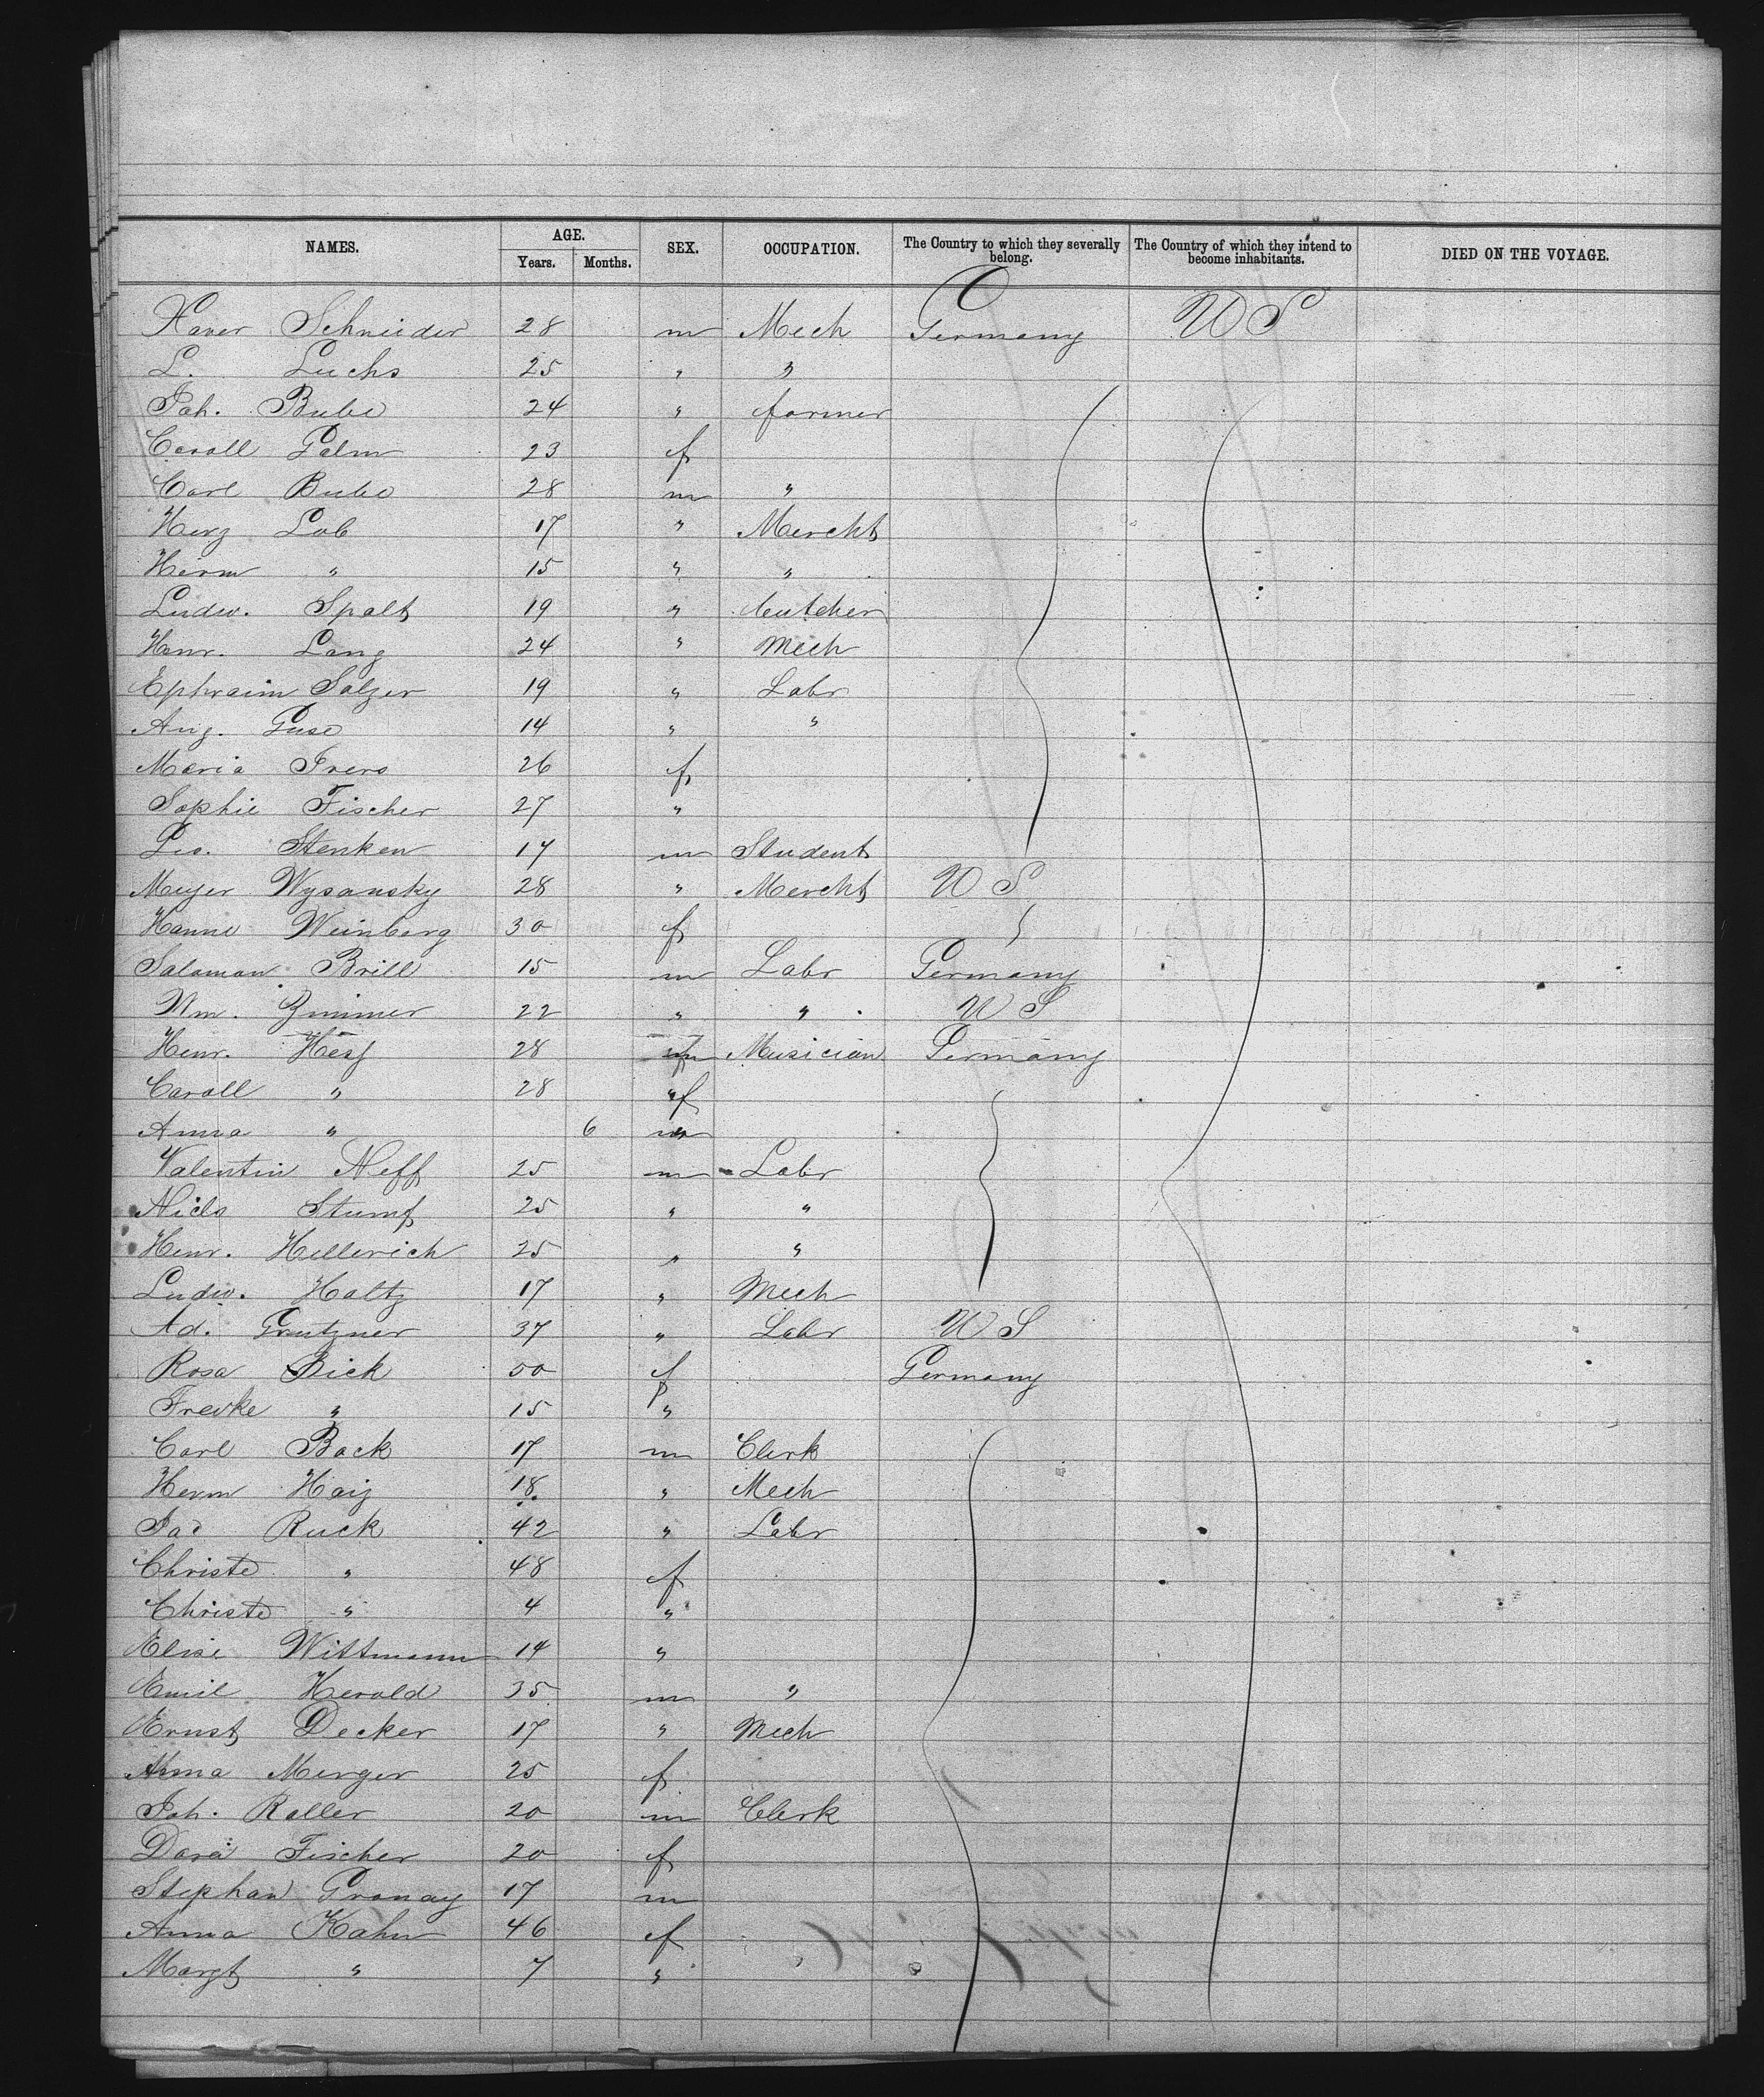 NAMES. AGE. SEX. OCCUPATION. The Country to which they severally belong. The Country of which they intend to become inhabitants. DIED ON THE VOYAGE.
Years. Months.
Xaver Schneider 28 m Mech Germany U S
L. Luchs 25 " "
Joh. Bube 24 " farmer
Caroll Palm 23 f
Carl Bube 28 m "
Herz Lob 17 " Mercht
Herm " 15 " "
Ludw. Spalt 19 " butcher
Henr. Lang 24 " Mech
Ephraim Salzer 19 " Labr
Aug. Guse 14 " "
Maria Frers 26 f
Sophie Fischer 27 "
Leo. Stenken 17 m Student
Meyer Wysansky 28 " Mercht U S
Hanne Weinberg 30 f
Salomon Brill 15 m Labr Germany
Wm. Zimmer 22 " " U S
Henr. Hess 28 m Musician Germany
Caroll " 28 f
Anna " 6 "
Valentin Neff 25 m Labr
Nicls Stumpf 25 " "
Henr. Hellerich 25 " "
Ludw. Holtz 17 " Mech
Ad. Grutzner 37 " Labr U S
Rosa Bick 50 f Germany
Frevke " 15 "
Carl Back 17 m Clerk
Herm Haig 18 " Mech
Jac Ruck 42 " Labr
Christe " 48 f
Christe " 4 "
Elise Wittmann 14 "
Emil Herold 35 m "
Ernst Decker 17 " Mech
Anna Merger 25 f
Joh. Raller 20 m Clerk
Dora Fischer 20 f
Stephan Gronay 17 m
Anna Kahn 46 f
Margt " 7 "